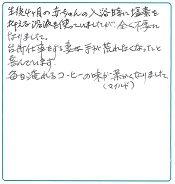 生後4ヶ月の赤ちゃんの入浴時に塩素を
抑える溶液を使っていましたが、全く不要に
なりました。
台所仕事をする妻は手が荒れなくなったと
喜んでいます!
毎日淹れるコーヒーの味が深くなりました
(マイルド)